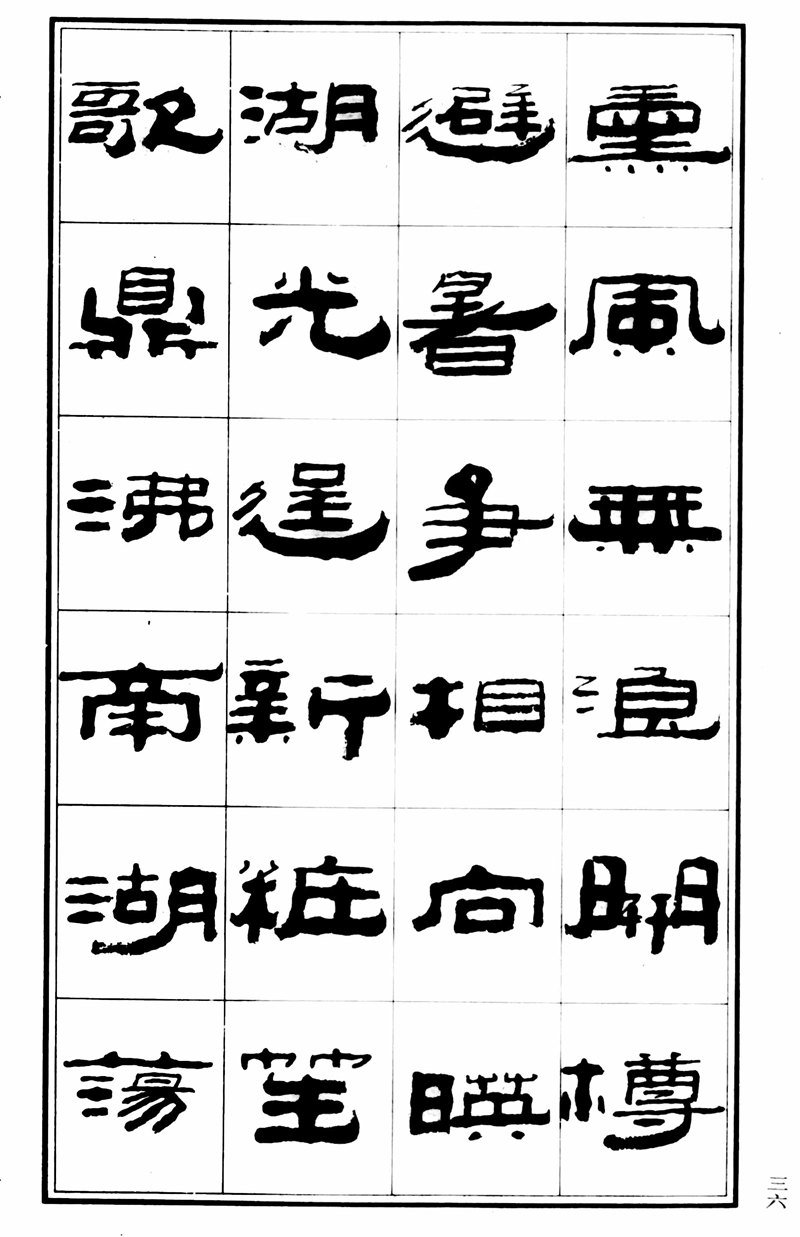 熏風無浪開樽
避暑爭相向暎
湖光逞新粧笙
歌鼎沸南湖蕩
三六